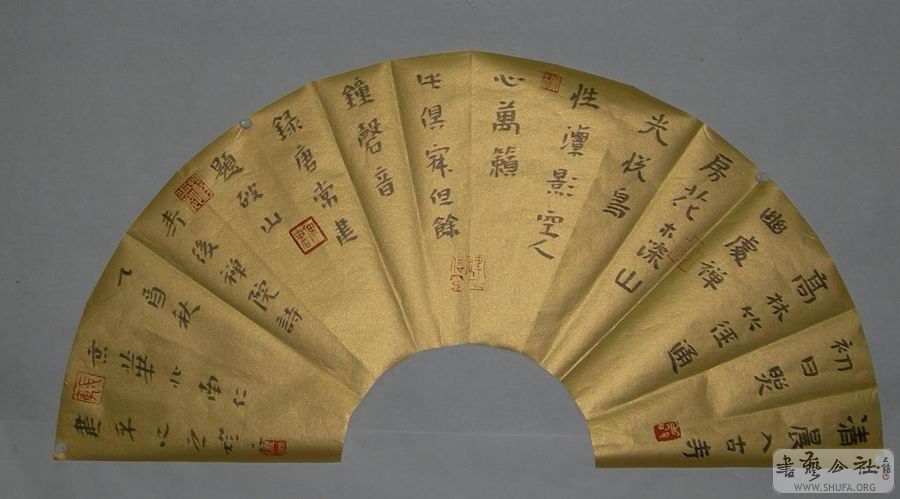 清晨入古寺
初日照
高林竹徑通
幽處禪
房花木深山
光悦鳥
性潭影空人
心萬籟
此俱寂但餘
鐘磬音
録唐常建
題破山
寺後禪院詩
乙酉秋
書藝公社
WWW.SHUFA.ORG